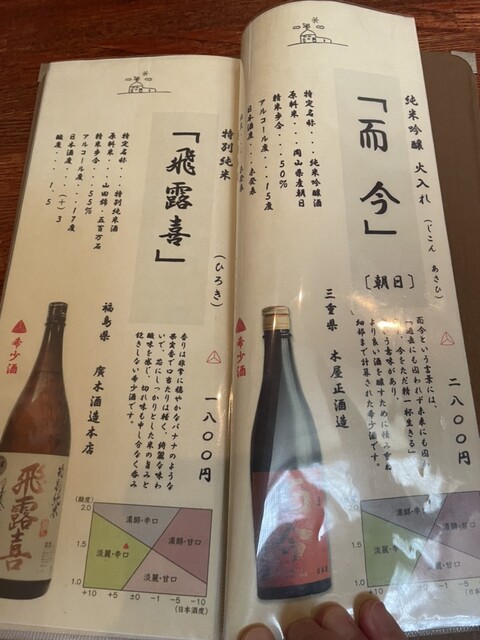 純米吟醸 火入れ
「而今」
(じこん あさひ)
〔朝日〕
特定名称・・・純米吟醸酒
原料米・・・岡山県産朝日
精米歩合・・・50%
アルコール度・・・15度
日本酒度・・・未発表
三重県 木屋正酒造
而今という言葉には、
「過去にも囚われず未来にも囚わ
れず、今をただ精一杯生きる」
という意味があり、
より良い酒を醸すために積み重ね
細部まで計算された希少酒です。
一八〇〇円
希少酒
(酸度)
2.0
1.5
1.0
濃醇・辛口
濃醇・甘口
淡麗・辛口
淡麗・甘口
+10 +5 ±0 -1 -5
特別純米
「飛露喜」
(ひろき)
特定名称・・・特別純米酒
原料米・・・山田錦・五百万石
精米歩合・・・55%
アルコール度・・・17度
日本酒度・・・(+)3
酸度・・・1.5
福島県 廣木酒造本店
香りは非常に穏やかなバナナのような
果実香で口当たりは軽く、綺麗な味わ
いで、芯にしっかりとした米の旨みと
酸味を感じ、切れ味も申し分なく呑み
飽きしない希少酒です。
一八〇〇円
希少酒
特別純米
飛露喜
(酸度)
2.0
1.5
1.0
濃醇・辛口
濃醇・甘口
淡麗・辛口
淡麗・甘口
+10 +5 ±0 -1 -5 -10
(日本酒度)